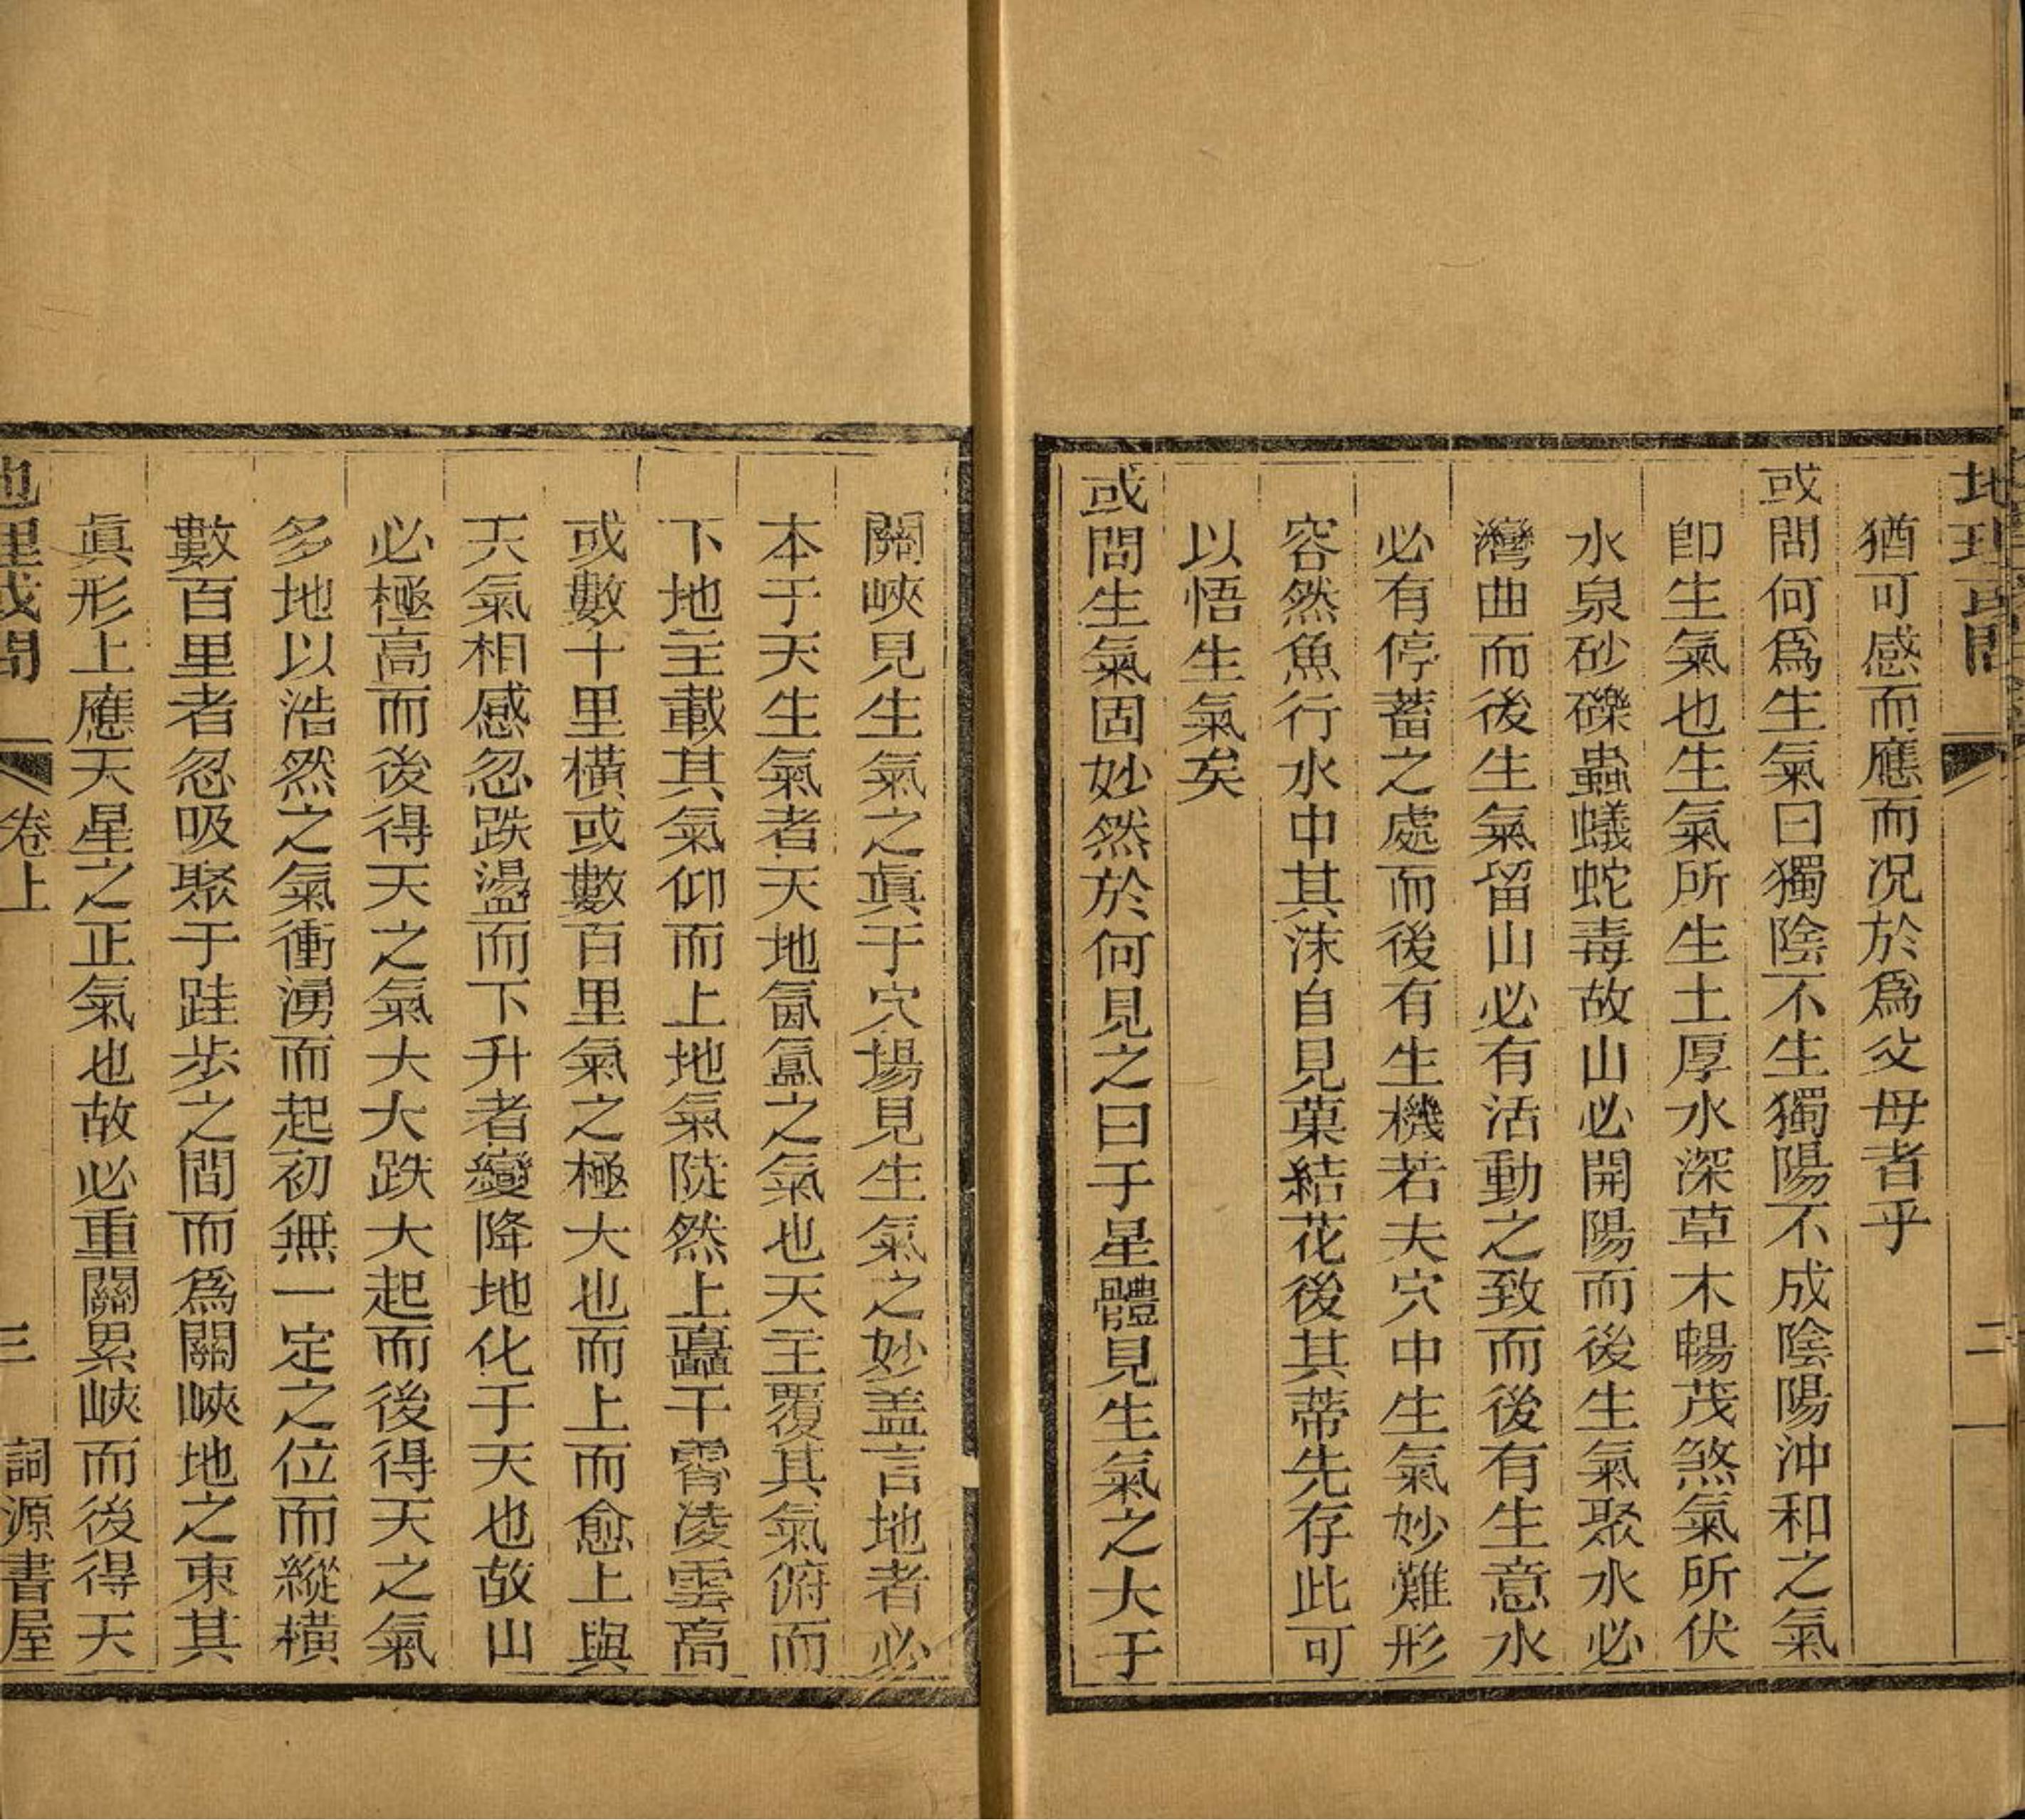 地理或問
二
猶可感而應而况於爲父母者乎
或問何爲生氣曰獨陰不生獨陽不成陰陽沖和之氣
卽生氣也生氣所生土厚水深草木暢茂煞氣所伏
水泉砂礫蟲蟻蛇毒故山必開陽而後生氣聚水必
灣曲而後生氣留山必有活動之致而後有生意水
必有停蓄之處而後有生機若夫穴中生氣妙難形
容然魚行水中其沫自見菓結花後其蒂先存此可
以悟生氣矣
或問生氣固妙然於何見之曰于星體見生氣之大于
關峽見生氣之眞于穴場見生氣之妙盖言地者必
本于天生氣者天地氤氳之氣也天主覆其氣俯而
下地主載其氣仰而上地氣陡然上矗干霄凌雲高
或數十里橫或數百里氣之極大也而上而愈上與
天氣相感忽跌盪而下升者變降地化于天也故山
必極高而後得天之氣大大跌大起而後得天之氣
多地以浩然之氣衝湧而起初無一定之位而縱橫
數百里者忽吸聚于跬步之間而爲關峽地之束其
眞形上應天星之正氣也故必重關累峽而後得天
地理或問
卷上
三
詞源書屋